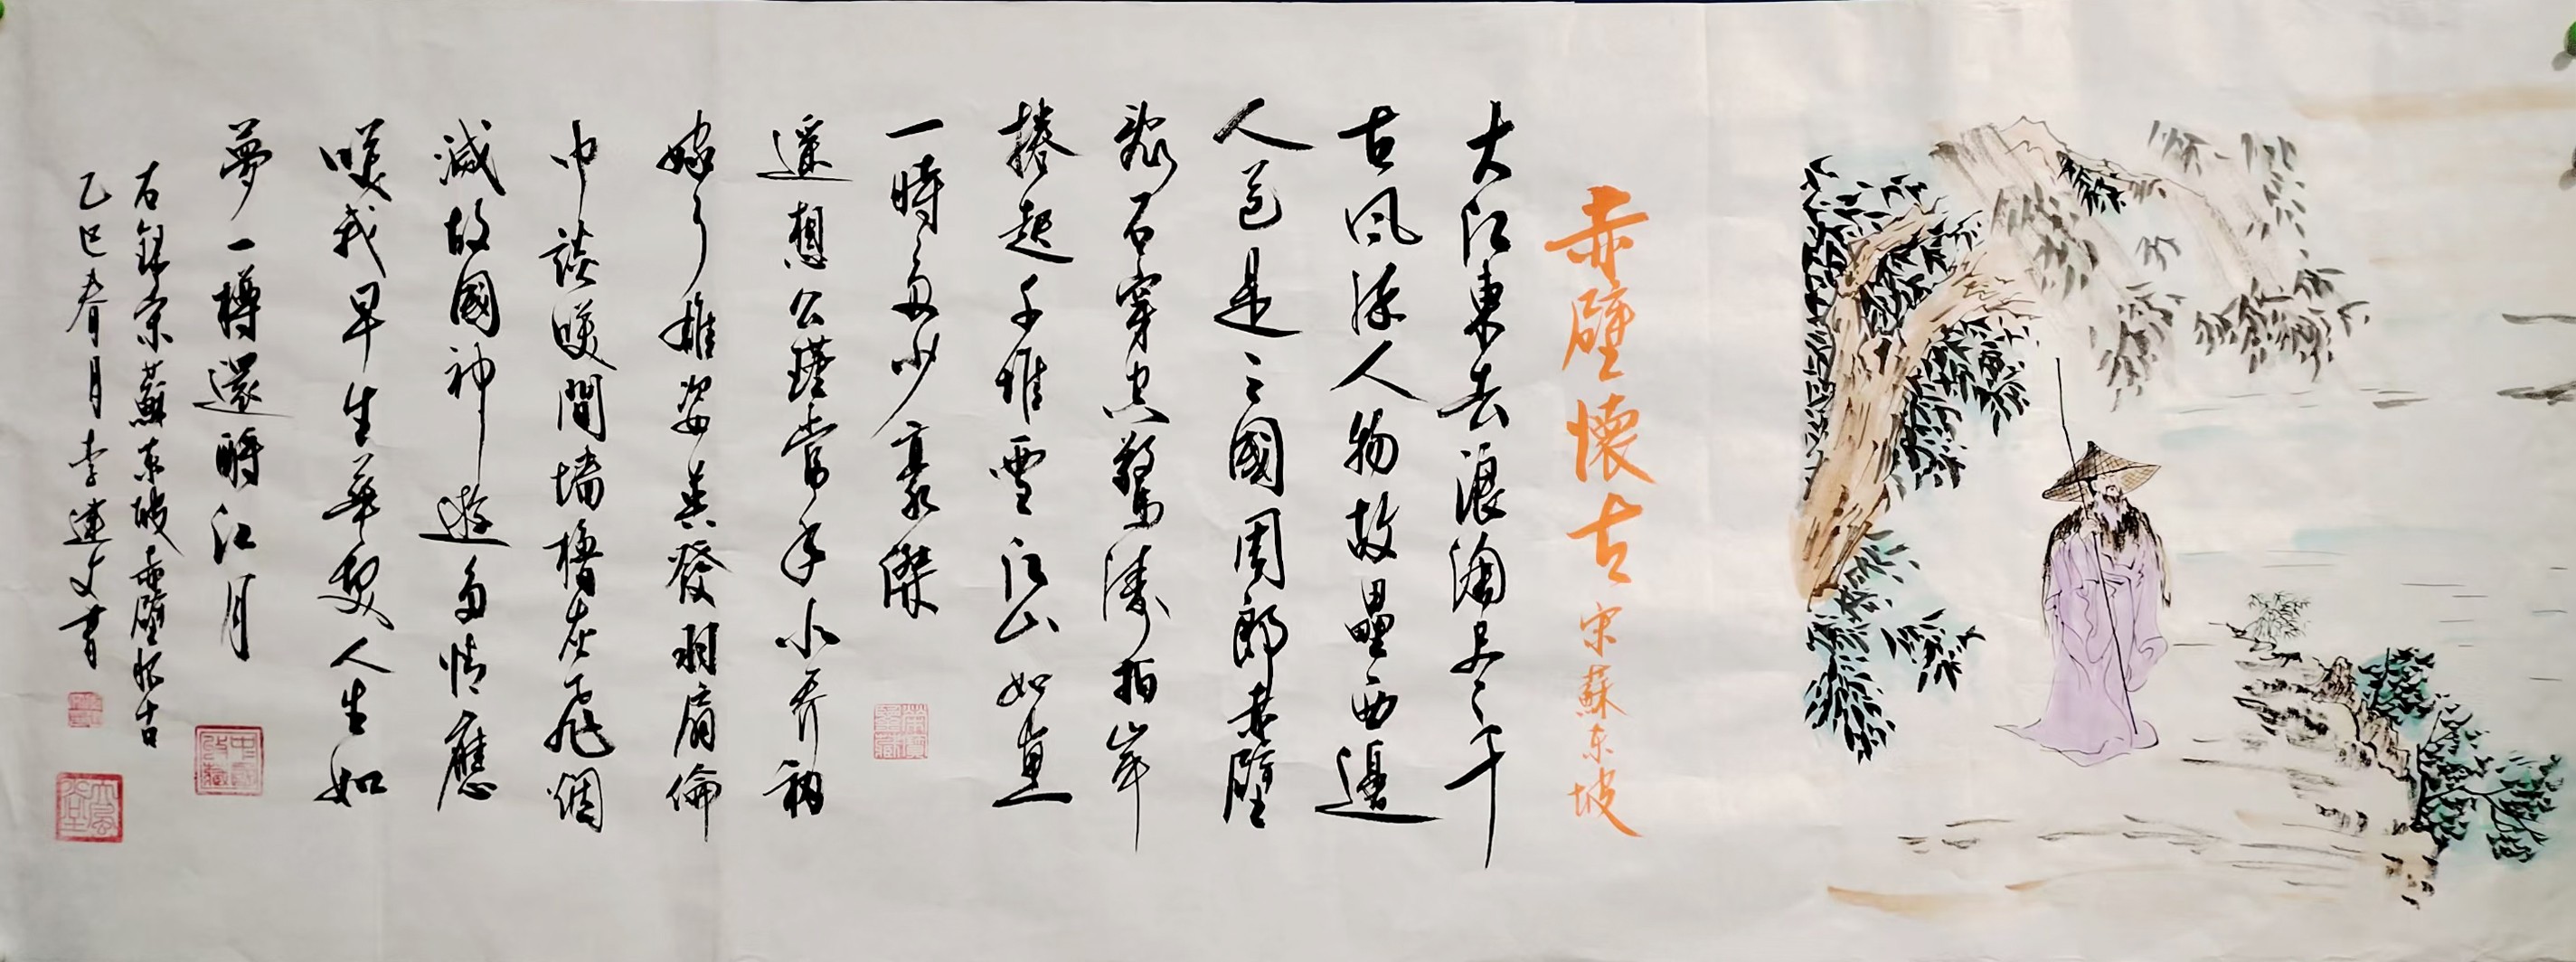 赤壁懷古 宋蘇东坡
大江東去浪淘盡千
古風流人物故壘西邊
人道是三國周郎赤壁
亂石穿空驚濤拍岸
捲起千堆雪江山如畫
一時多少豪傑
遥想公瑾當年小喬初
嫁了雄姿英發羽扇綸
巾談笑間墙櫓灰飛煙
滅故國神遊多情應
笑我早生華髮人生如
夢一樽還酹江月
右錄宋蘇东坡赤壁怀古
乙巳春月李連文書